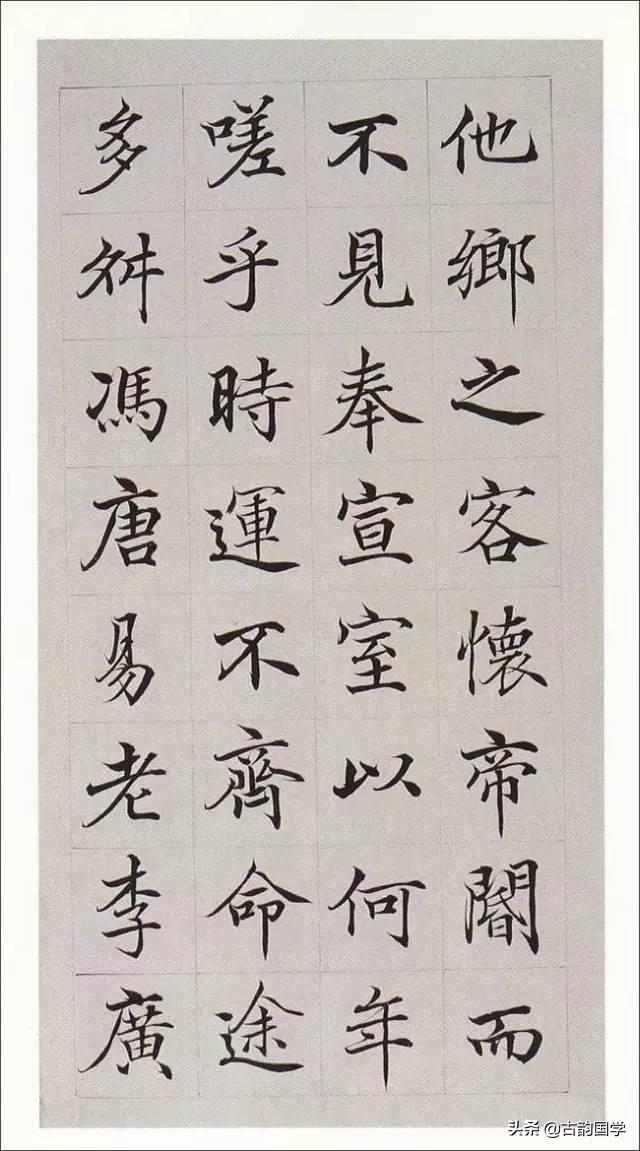 他鄉之客懷帝閽而
不見奉宣室以何年
嗟乎時運不齊命途
多舛馮唐易老李廣
头条 @古韵国学